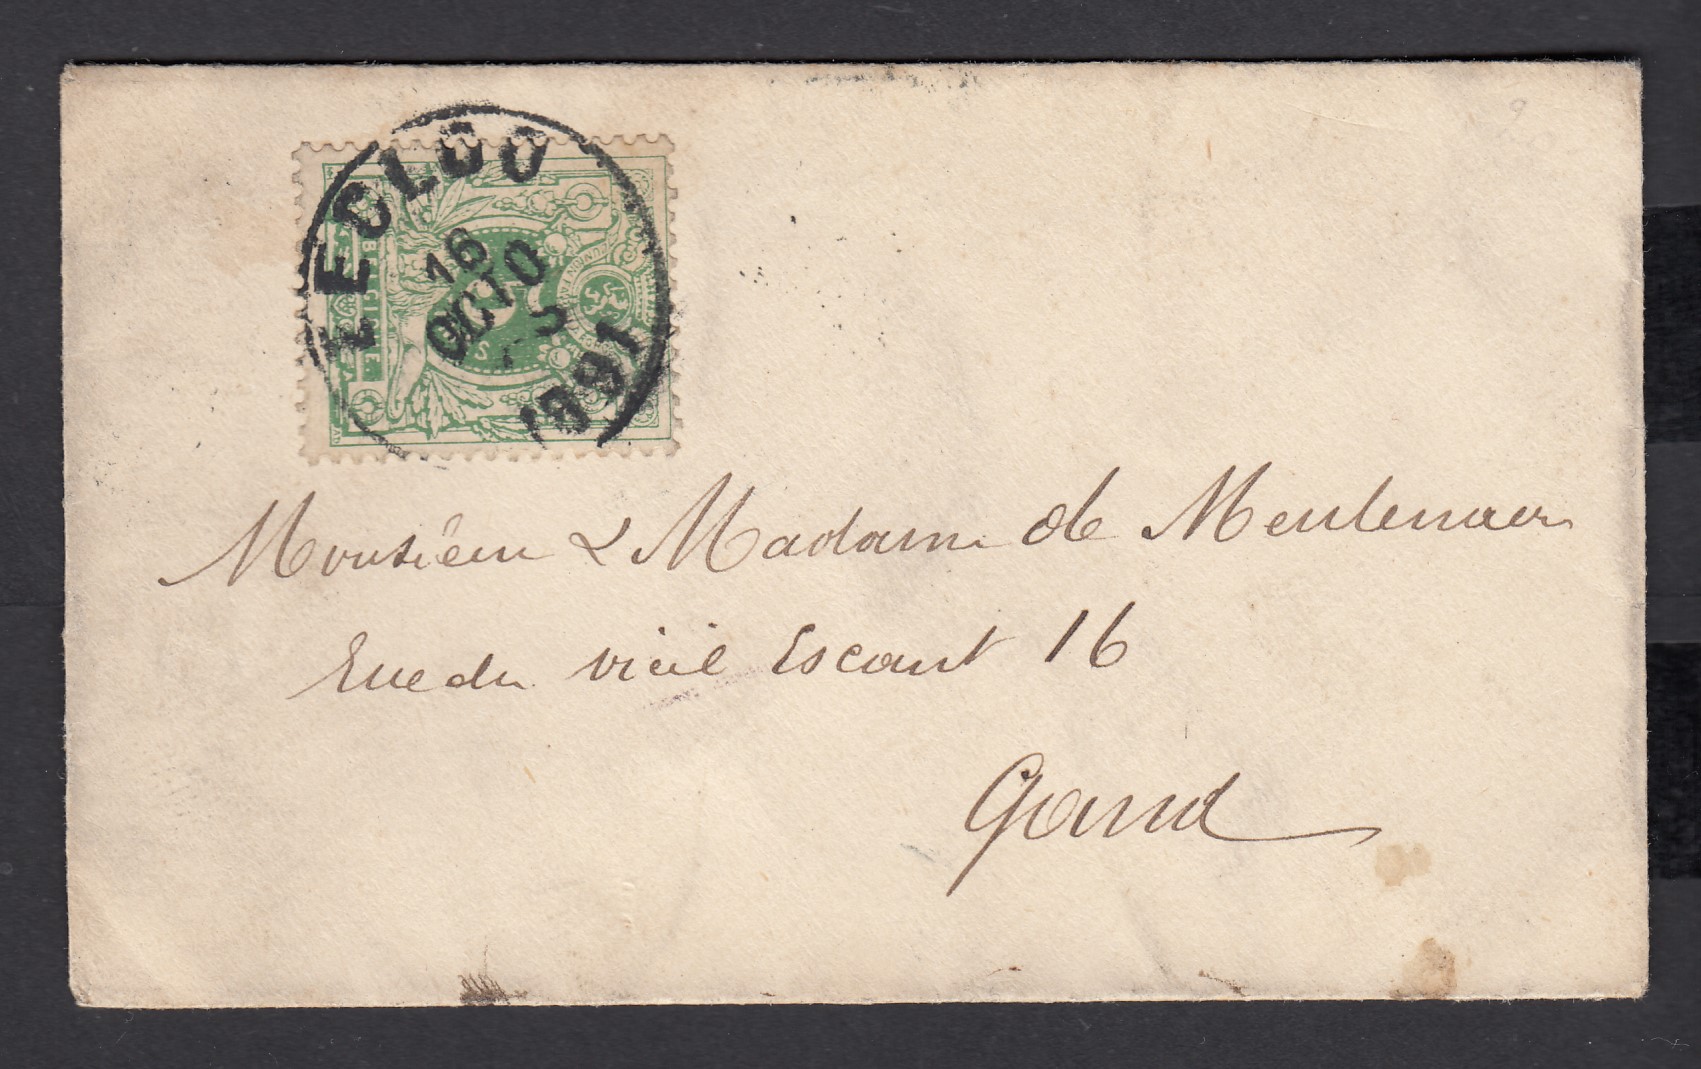 EECLOO
16
OCTO
5
1891
BELGIQUE
5
Monsieur & Madame de Meulenaer
Rue du vieil Escaut 16
Gand